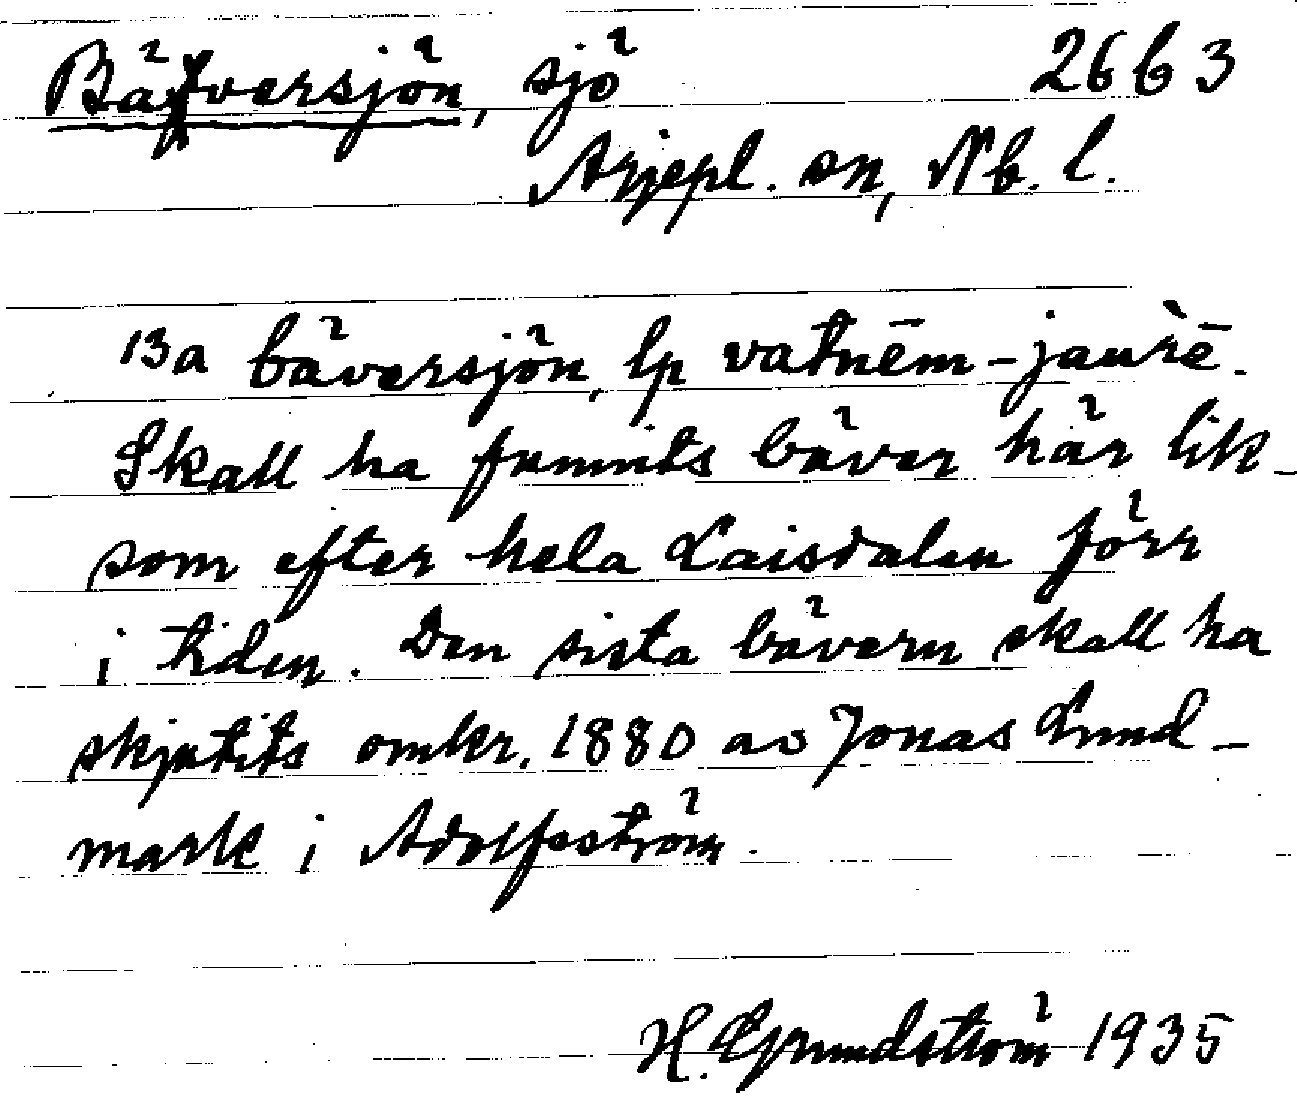 Bäversjön, sjö 26 b 3
Arjepl. sn, Nb. l.
13a bäversjön, lp vatnēm-jaùrē.
Skall ha funnits bäver här lik-
som efter hela Laisdalen förr
i tiden. Den sista bävern skall ha
skjutits omkr. 1880 av Jonas Lund-
mark i Adolfsström.
H. Grundström 1935